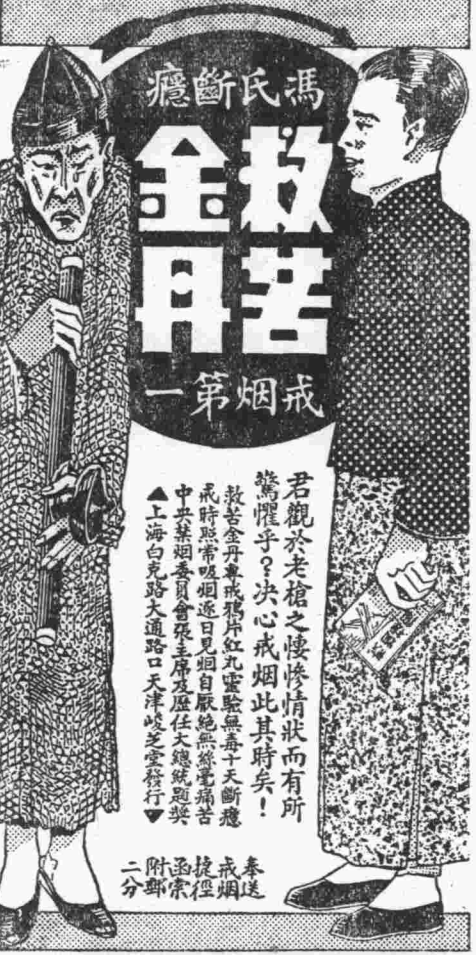 馮氏斷癮
救苦
金丹
戒烟第一
君觀於老槍之悽慘情狀而有所
驚懼乎?决心戒烟此其時矣!
救苦金丹專戒鴉片紅丸靈驗無毒十天斷癮
戒時照常吸烟逐日見烟自厭絕無絲毫痛苦
中央禁烟委員會張主席及歷任大總統題獎
▲上海白克路大通路口天津峻芝堂發行▼
奉送
戒烟
捷徑
函索
附郵
二分